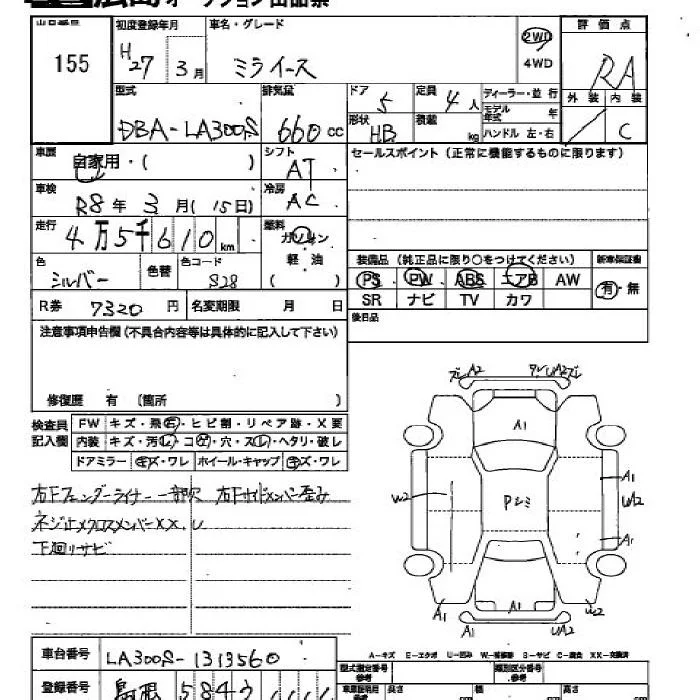 広島 オークション出品票
出品番号 155
初度登録年月 H27 3月
車名・グレード ミライース
2WD
4WD
評価点 RA
外装 内装 C
型式 DBA-LA300S
排気量 660cc
ドア 5
定員 4人
形状 HB
積載 kg
ディーラー・並行
モデル年式 年
ハンドル 左・右
車歴 自家用・( )
シフト AT
セールスポイント(正常に機能するものに限ります)
車検 R8年 3月(15日)
冷房 AC
走行 4万5千610km
燃料 ガソリン
軽油
( )
色 シルバー
色替
色コード S28
装備品(純正品に限り○をつけてください)
新車保証書
PS PW ABS エアB AW
有・無
SR ナビ TV カワ
R券 7320円
名変期限 月 日
後日品
注意事項申告欄(不具合内容等は具体的に記入して下さい)
修復歴 有 (箇所 )
検査員記入欄
FW キズ・飛石・ヒビ割・リペア跡・X要
内装 キズ・汚レ・コゲ・穴・スレ・ヘタリ・破レ
ドアミラー キズ・ワレ ホイール・キャップ キズ・ワレ
右Fフェンダーライナー一部欠 右Fサイドメンバー歪み
ネジ止メクロスメンバーXX. U
下廻りサビ
ズレ A2
ズレ UA2 ズレ
A1
A1
W2
Pシミ
U2
A1
A1
A1
A1
U2
A-キズ E-エクボ U-凹み W-補修跡 S-サビ C-腐食 XX-交換済
車台番号 LA300S-1313560
登録番号 島根 584
型式指定番号
類別区分番号
長さ cm
幅 cm
高さ cm